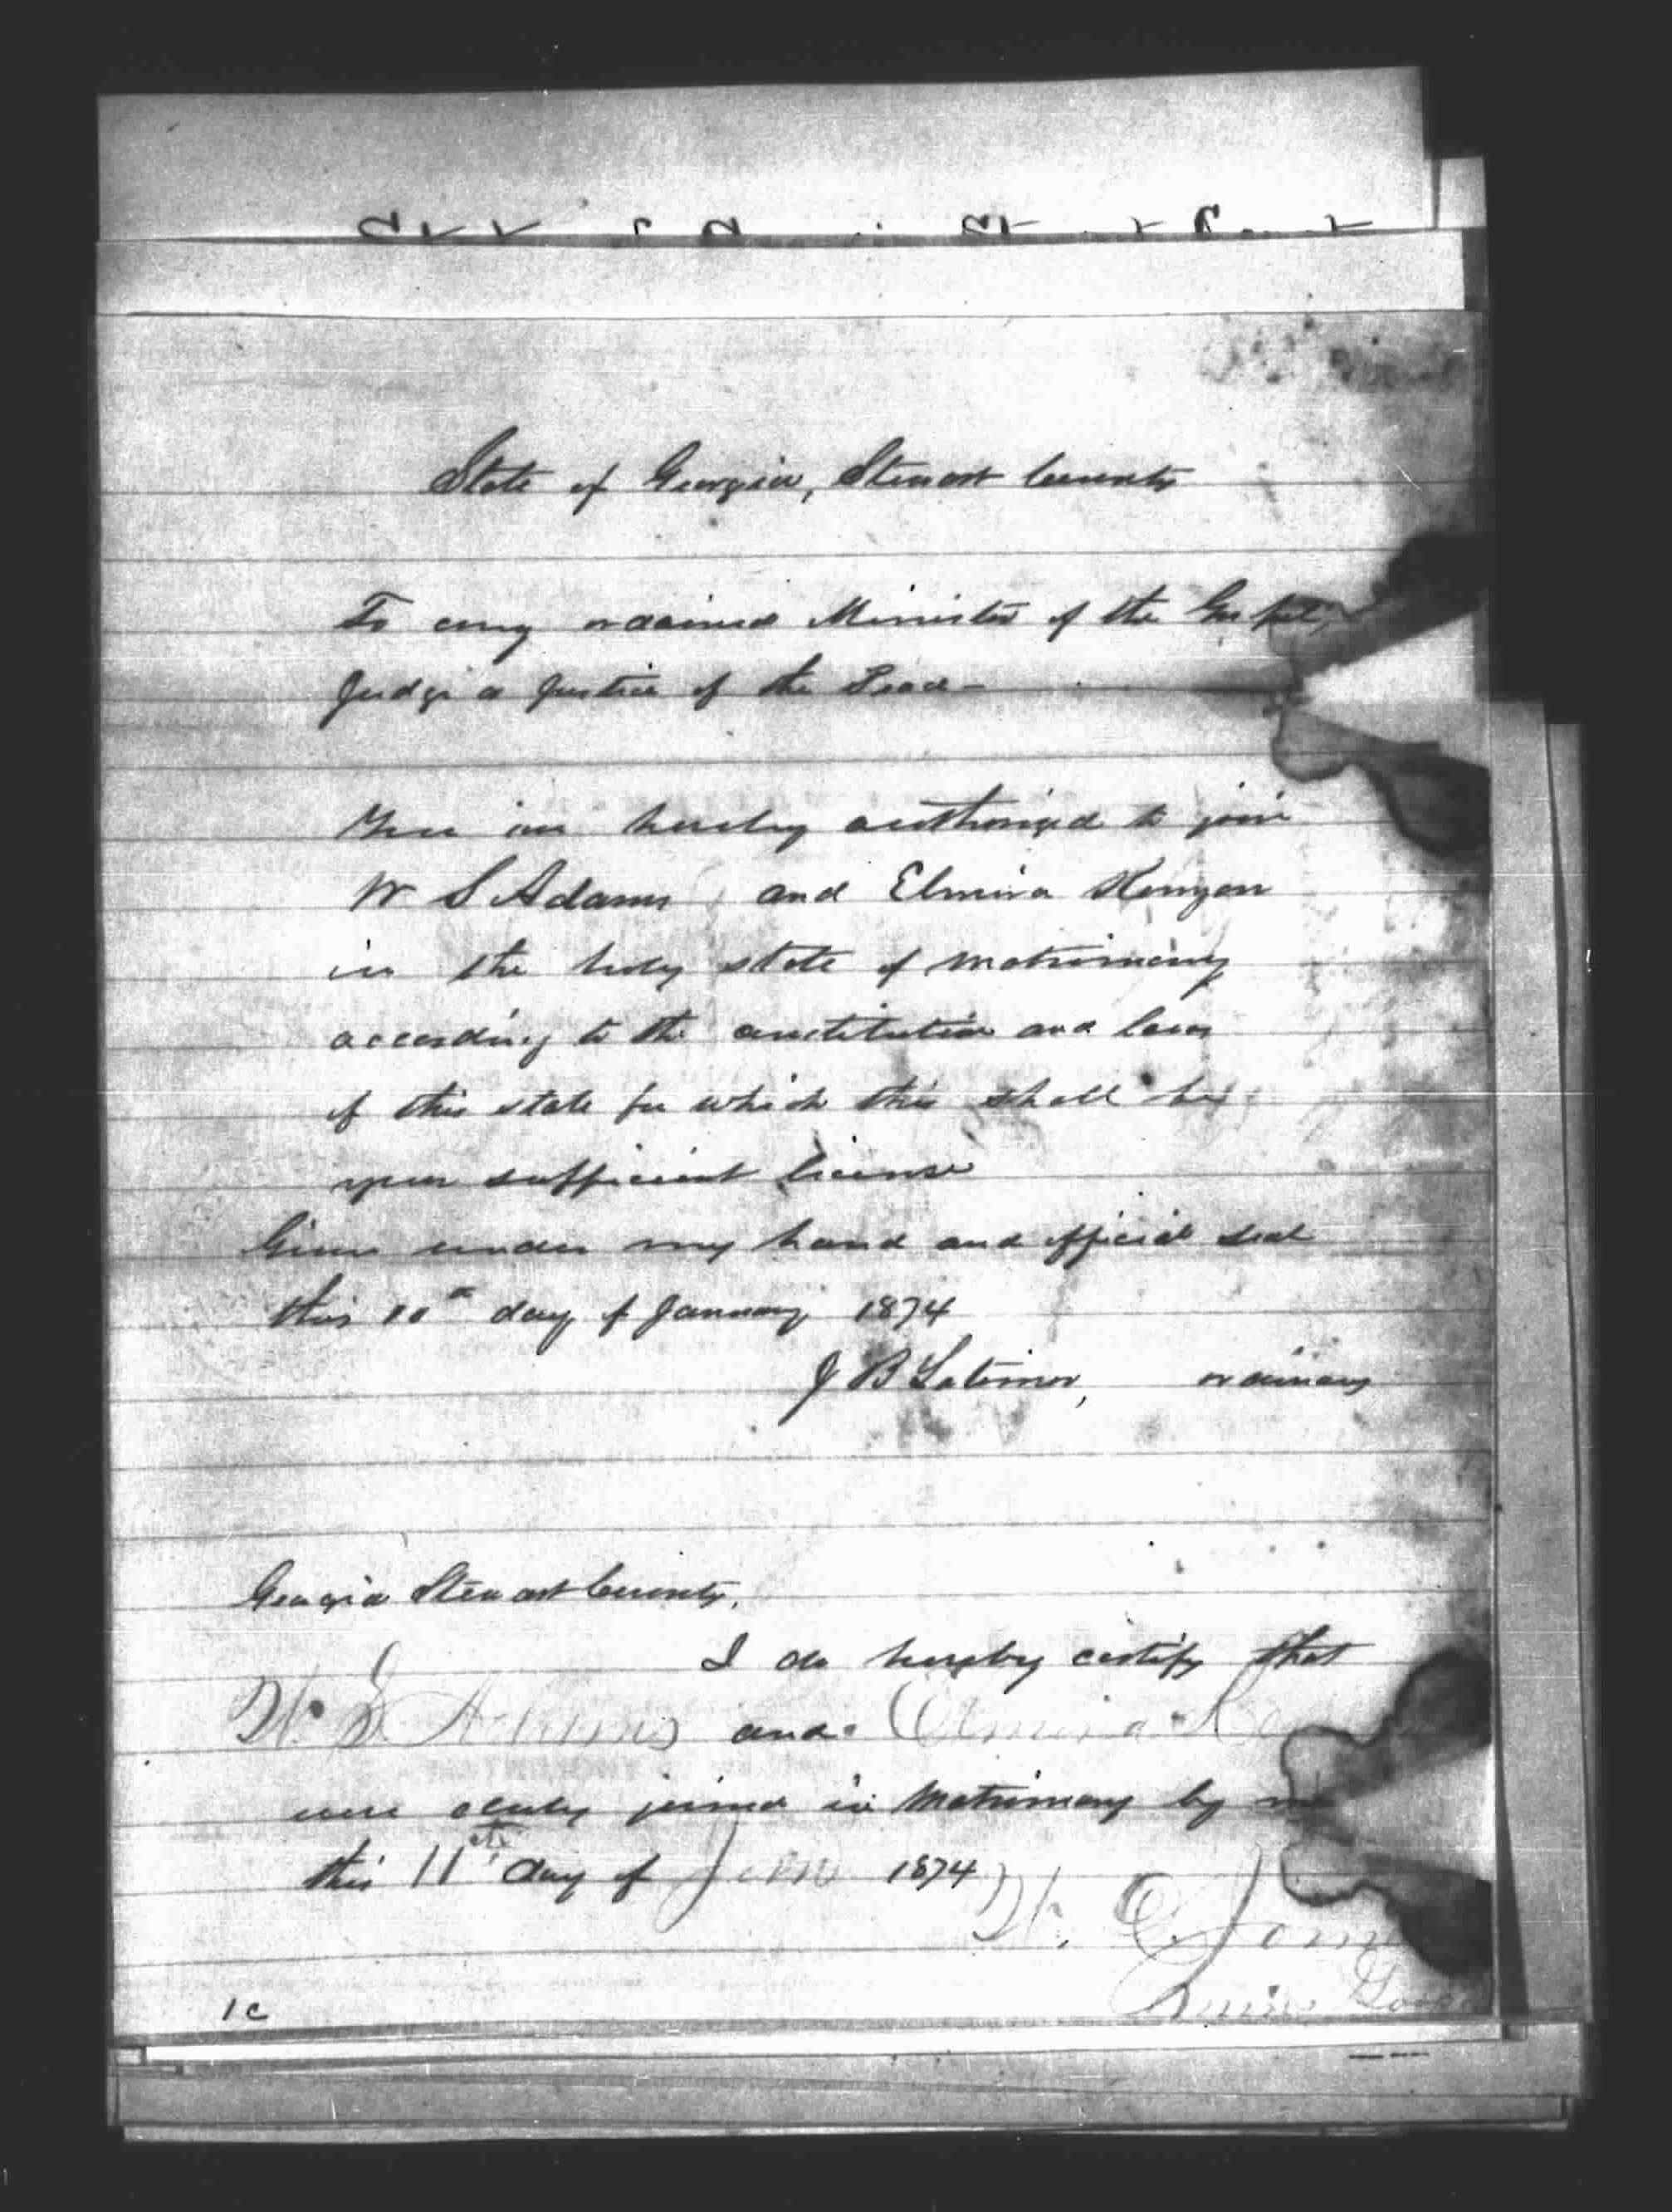 State of Georgia, Stewart County
To any ordained Minister of the Gospel,
Judge or Justice of the Peace—
You are hereby authorized to join
W S Adams and Elmira Kenyon
in the holy state of matrimony
according to the constitution and laws
of this state for which this shall be
your sufficient license
Given under my hand and official seal
this 10th day of January 1874
J B Latimer, ordinary
Georgia Stewart County.
I do hereby certify that
W. S. Adams and Elmira
were duly joined in matrimony by me
this 11th day of Jan 1874
W.
1c